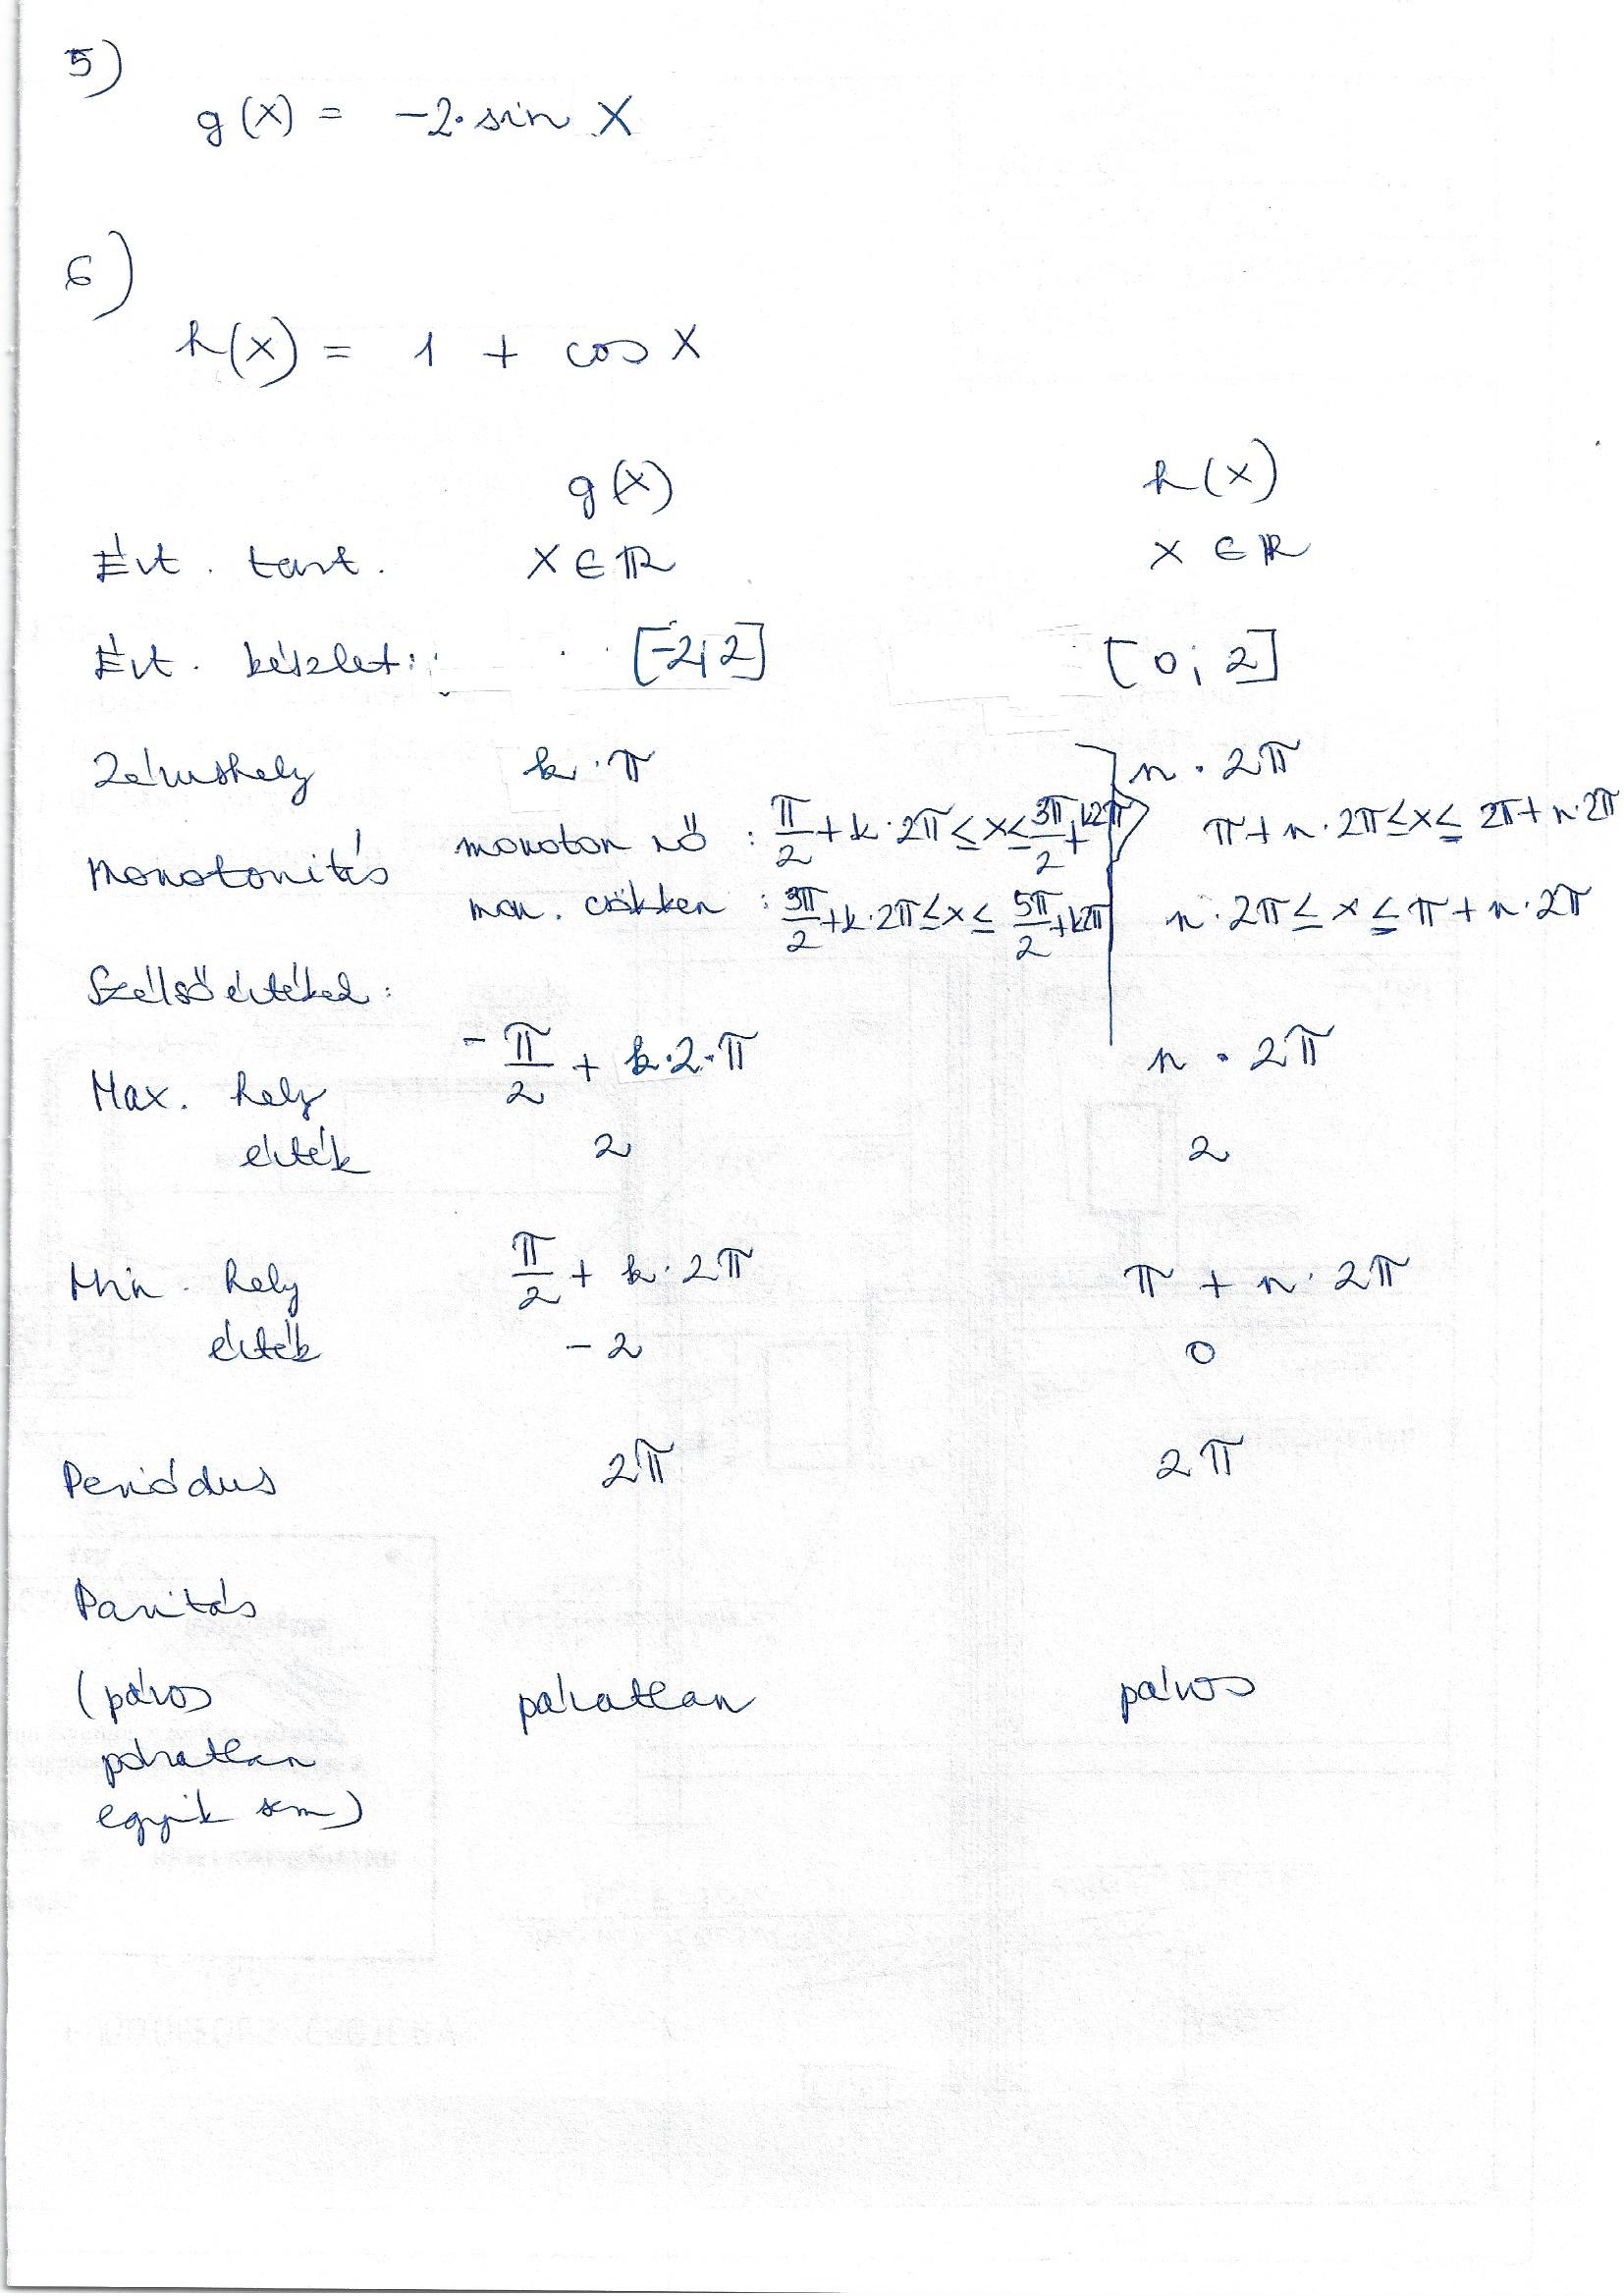 5)
g(x) = -2·sin x
6)
h(x) = 1 + cos x
g(x) h(x)
Ért. tart. x ∈ ℝ x ∈ ℝ
Ért. készlet: [-2; 2] [0; 2]
Zérushely k·π n·2π
Monotonitás monoton nő: π/2 + k·2π ≤ x ≤ 3π/2 + k2π π + n·2π ≤ x ≤ 2π + n·2π
mon. csökken: 3π/2 + k·2π ≤ x ≤ 5π/2 + k2π n·2π ≤ x ≤ π + n·2π
Szélsőértékek:
Max. hely -π/2 + k·2·π n·2π
érték 2 2
Min. hely π/2 + k·2π π + n·2π
érték -2 0
Periódus 2π 2π
Paritás
(páros páratlan páros
páratlan
egyik sem)